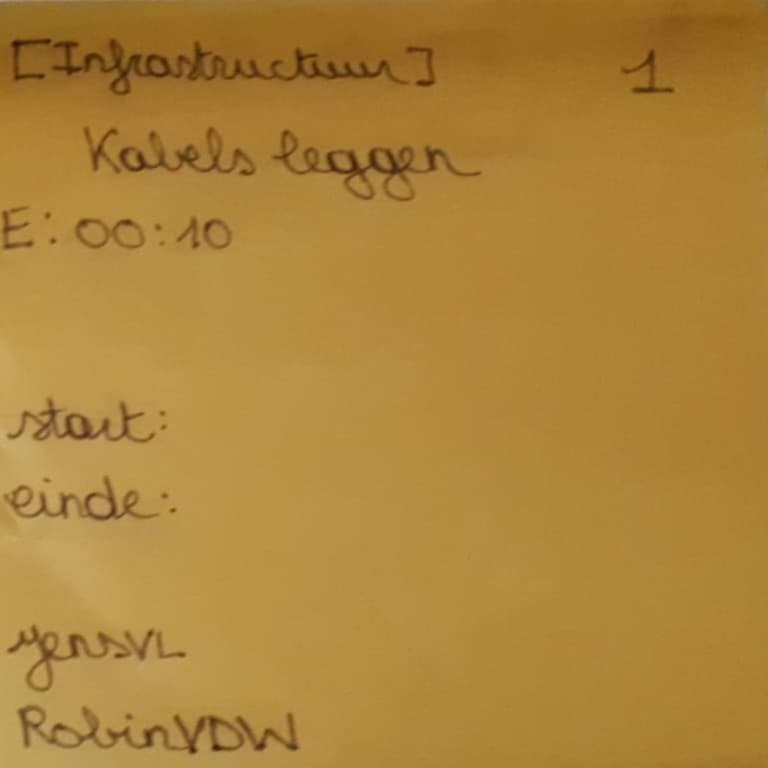 [Infrastructuur] 1
Kabels leggen
E: 00:10
start:
einde:
yensVL
RobinVDW